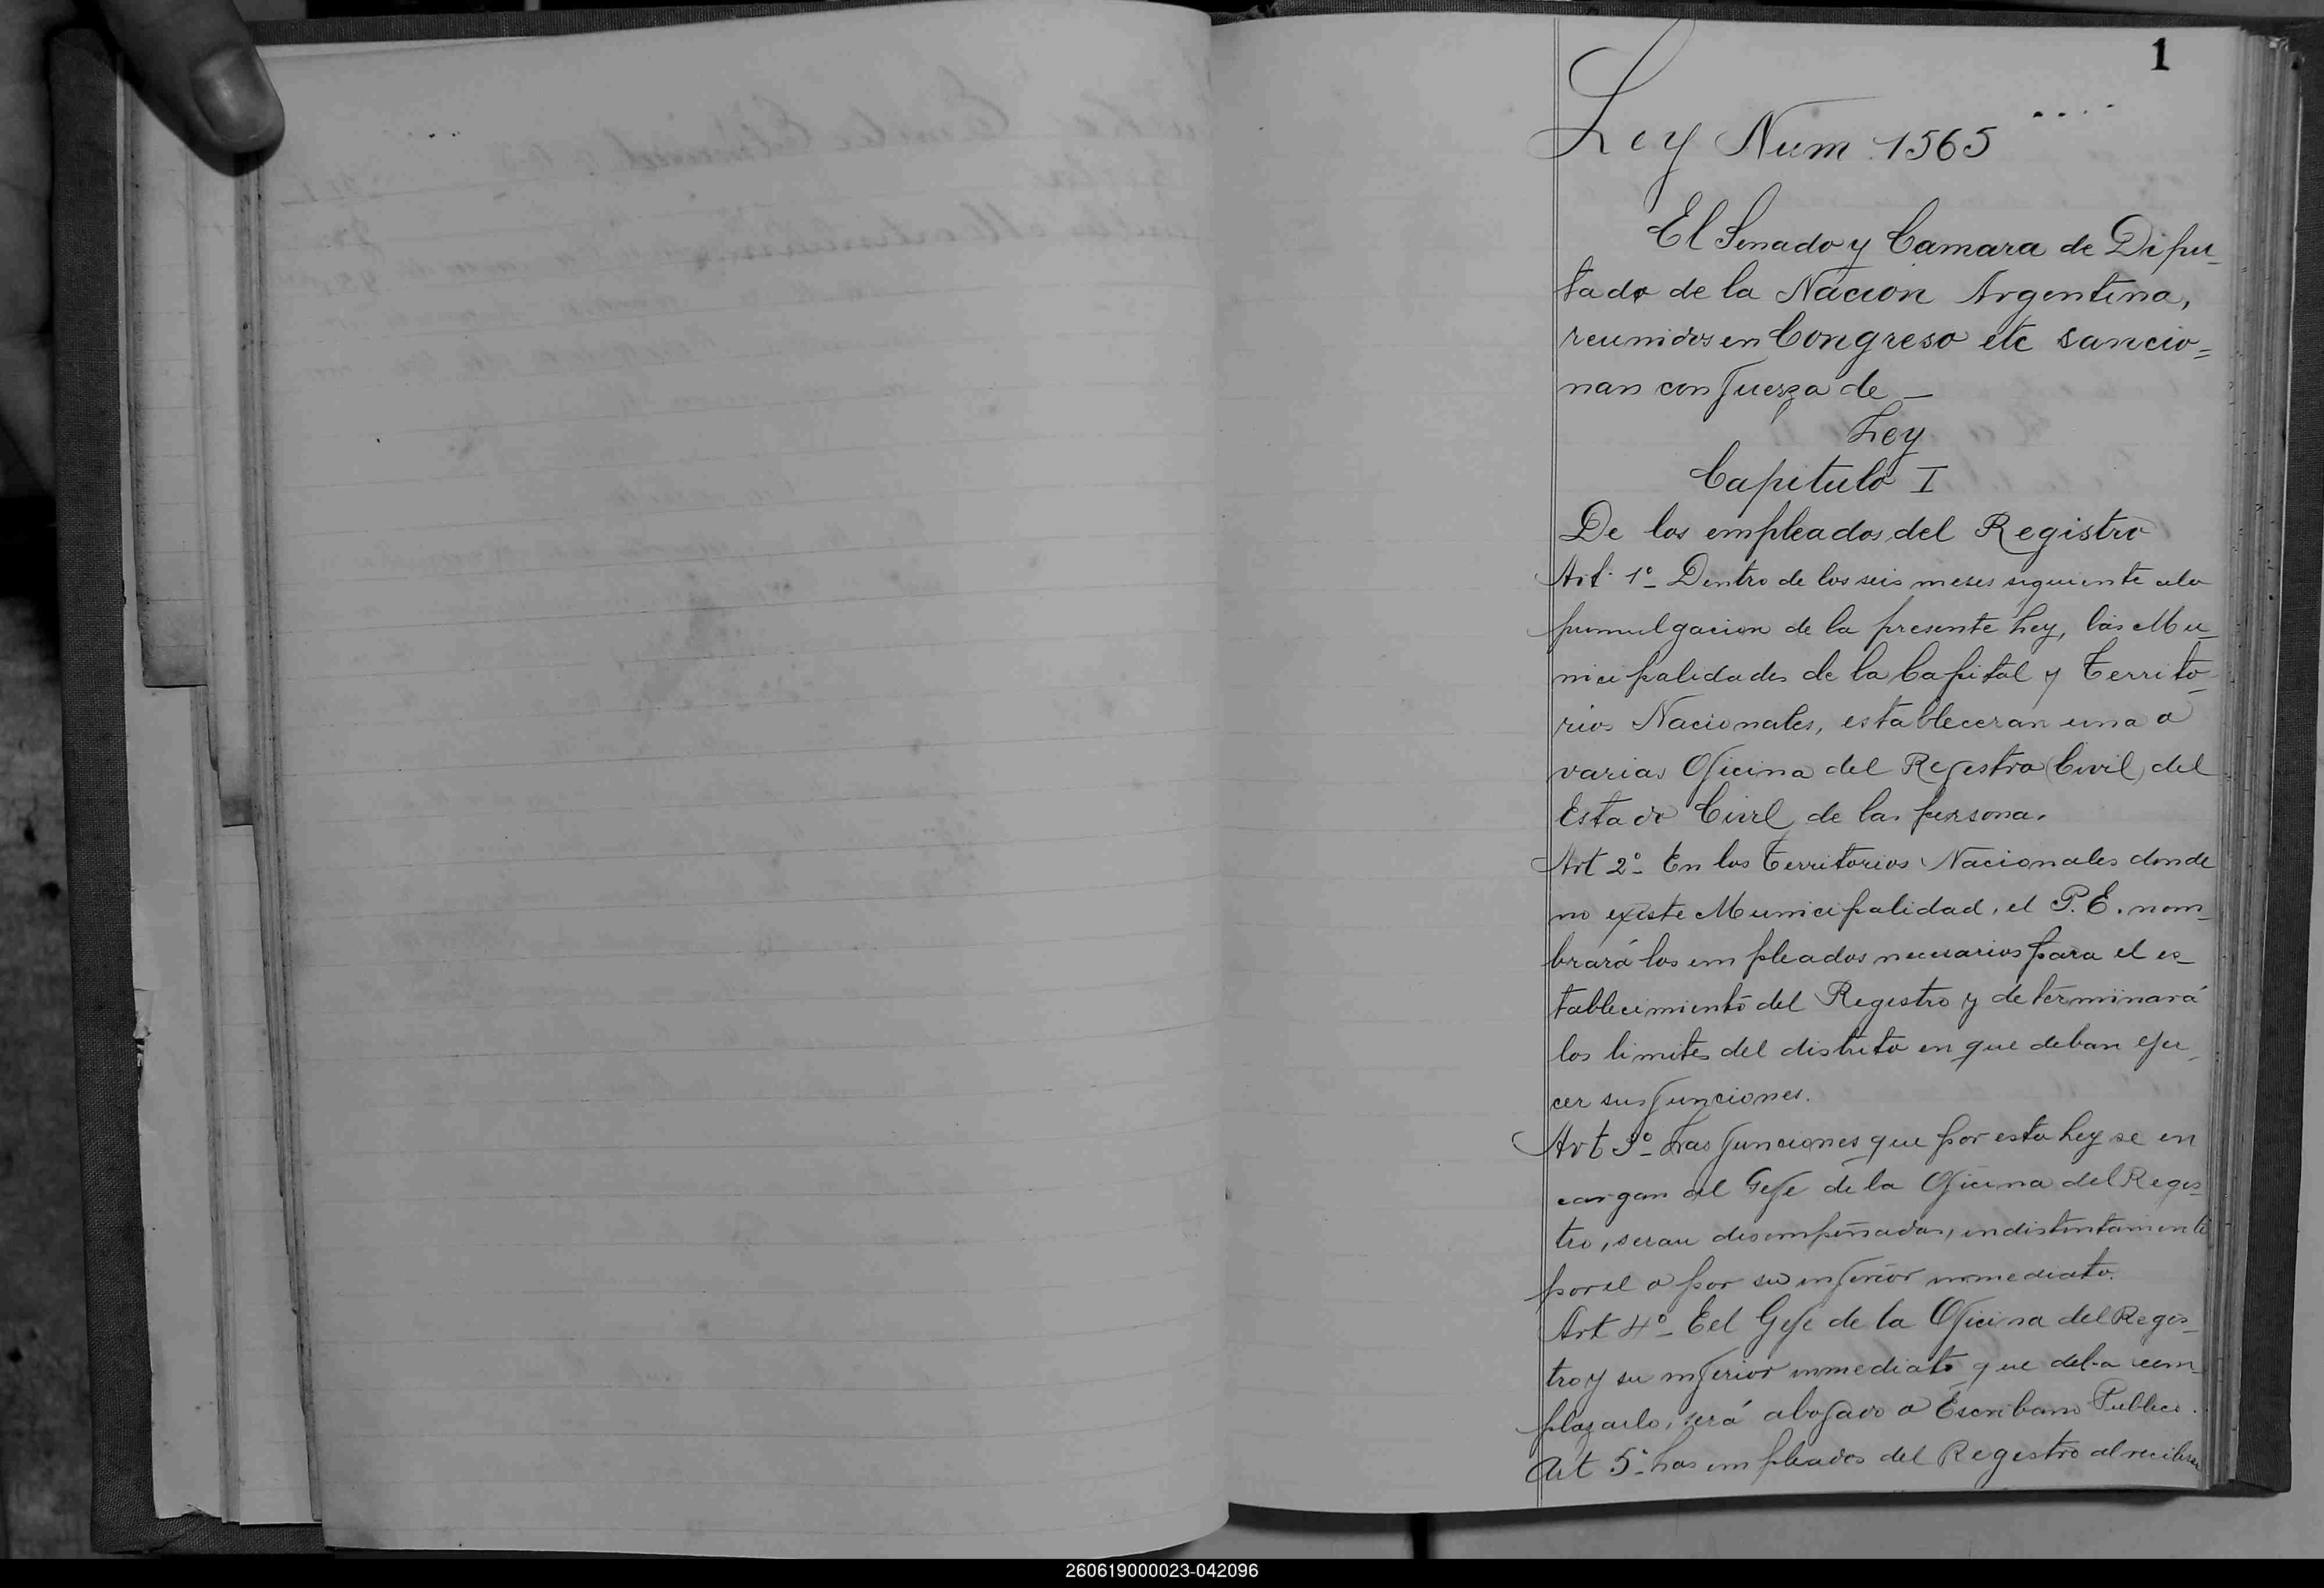 1
Ley Num 1565
El Senado y Camara de Dipu-
tado de la Nacion Argentina,
reunidos en Congreso etc sancio=
nan con fuerza de —
Ley
Capitulo I
De los empleados del Registro
Art. 1º- Dentro de los seis meses siguiente a la
pumulgacion de la presente Ley, las Mu-
nicipalidades de la Capital y Territo-
rios Nacionales, estableceran una o
varias Oficina del Registro (Civil) del
Estado Civil de las persona.
Art 2º- En los Territorios Nacionales donde
no existe Municipalidad, el P.E. nom-
brará los empleados necesarios para el es-
tablecimiento del Registro y determinará
los limites del distrito en que deban ejer-
cer sus funciones.
Art 3º- Las funciones que por esta Ley se en
cargan al Gefe de la Oficina del Regis-
tro, seran desempeñadas, indistintamente
por el o por su inferior inmediato.
Art 4º- Eel Gefe de la Oficina del Regis-
tro y su inferior inmediato que deba reem-
plazarlo, será abogado o Escribano Publico.
Art 5º- Los empleados del Registro al recibirse
260619000023-042096